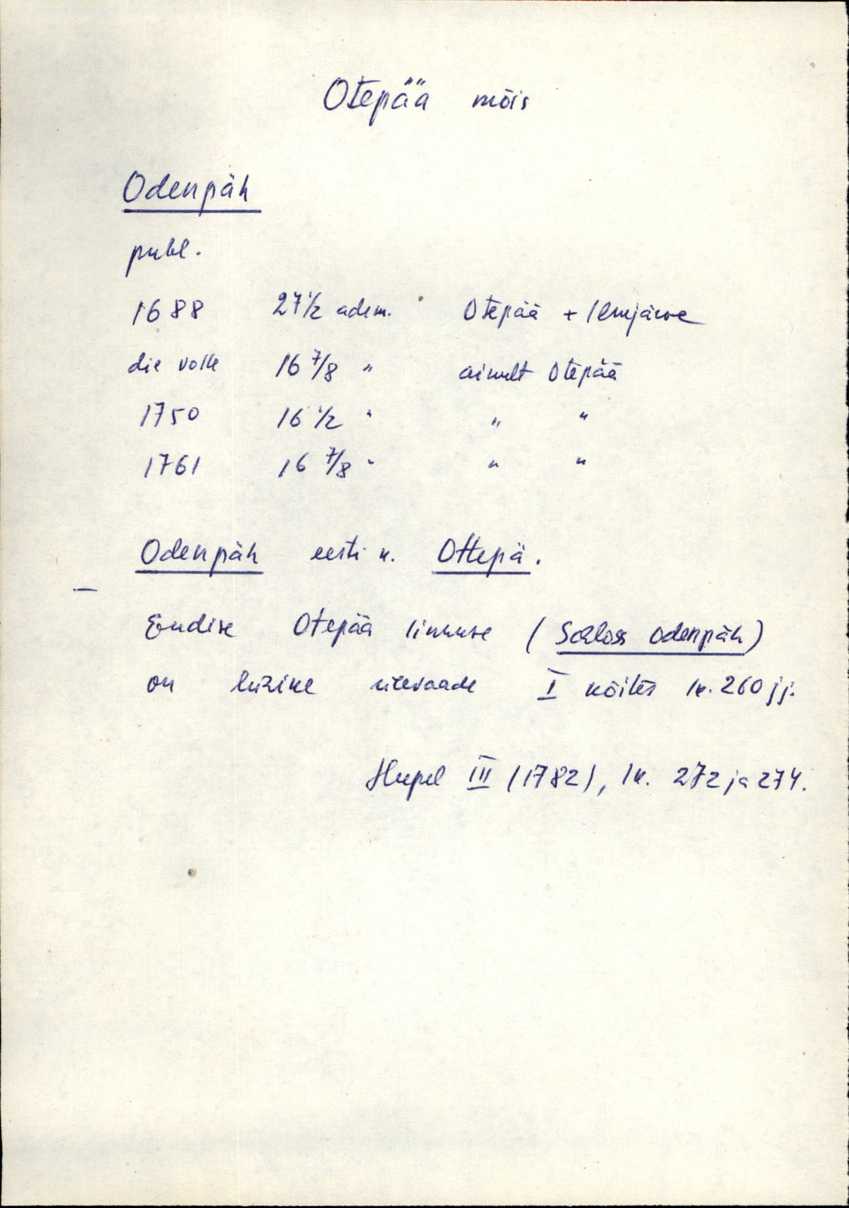 Otepää mõis
Odenpäh
publ.
1688 27 1/2 adm. Otepää + Ilmjärve
die volle 16 7/8 " ainult Otepää
1750 16 1/2 " " "
1761 16 7/8 " " "
Odenpäh eesti k. Ottepä.
Endise Otepää linnuse (Schloss Odenpäh)
on lühike ülevaade I köites lk. 260 jj.
Hupel III (1782), lk. 272 ja 274.